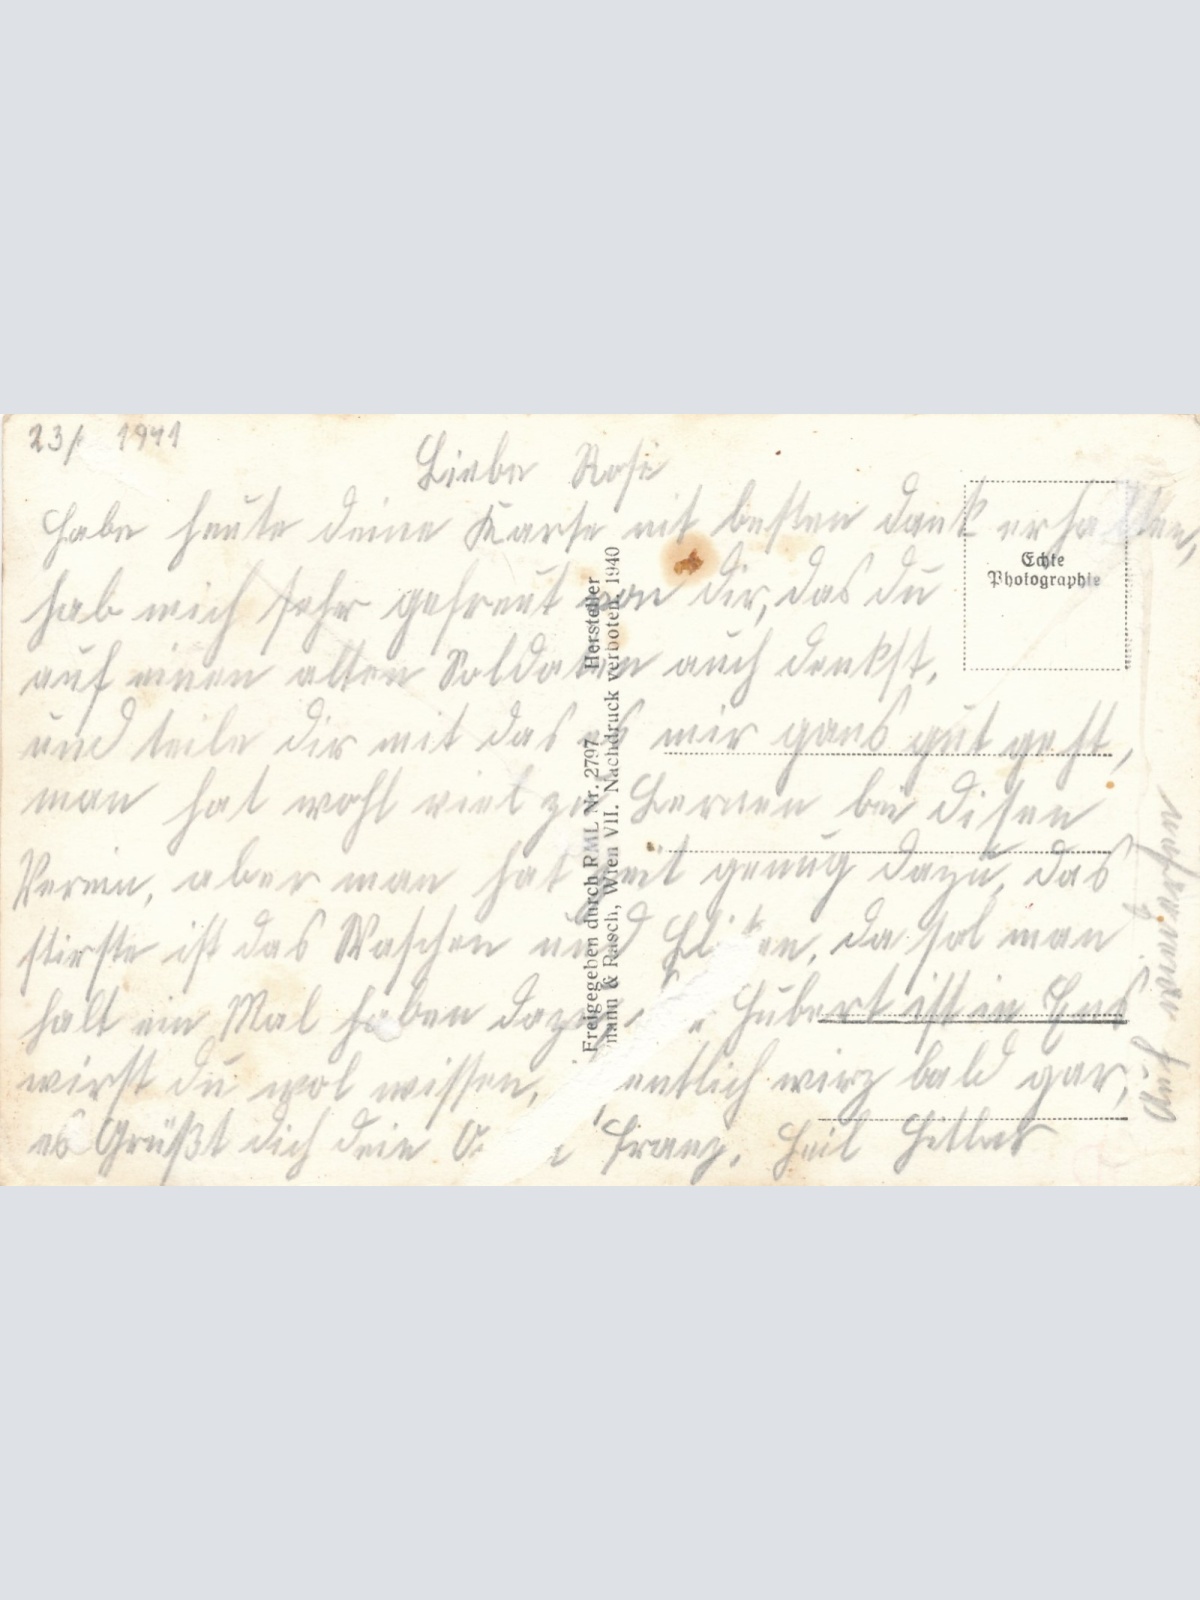 23/ 1941
Liebe Rosi
Habe heute deine Karte mit besten dank erhalten,
hab mich sehr gefreut von dir, das du
auf einen alten Soldaten auch denkst,
und teile dir mit das es mir gans gut geht,
man hat wohl viel zu Lernen bei disen
Verein, aber man hat zeit genug dazu, das
ist das Waschen und da sol man
halt ein Mal haben dazu Hubert ist in
wirst du wol wissen, entlich wirz bald gar,
es Grüßt dich dein Franz. Heil Hitler
Auf
Echte
Photographie
Freigegeben durch RML Nr. 2797 Hersteller
mann & Rasch, Wien VII. Nachdruck verboten. 1940